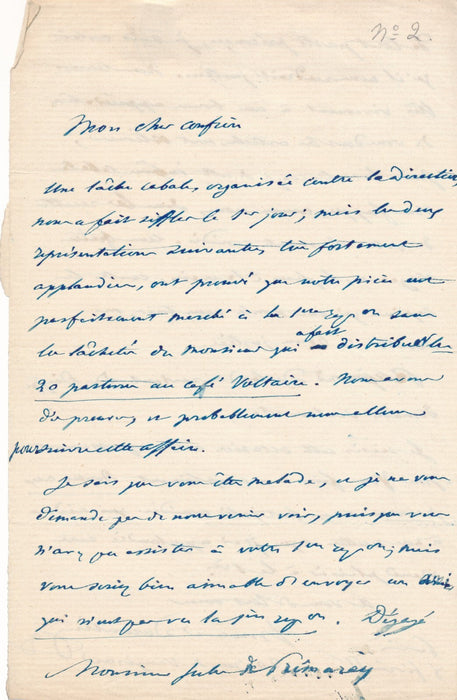 No 2.
Mon cher confrère
Une lâche cabale, organisée contre la direction,
nous a fait siffler le 1er jour; mais les deux
représentations suivantes, très fortement
applaudies, ont prouvé que notre pièce eut
parfaitement marché à la 1ère repon sans
la lâcheté du monsieur qui a fait distribuer les
20 parterres au café Voltaire. Nous avons
des preuves, et probablement nous allons
poursuivre cette affaire.
Je sais que vous êtes malade, et je ne vous
demande pas de nous venir voir, puisque vous
n'avez pu assister à votre 1ère repon; mais
vous seriez bien aimable d'envoyer un ami,
qui n'ait pas vu la 1ère repon. Dégagé
Monsieur Jules de Prémaray